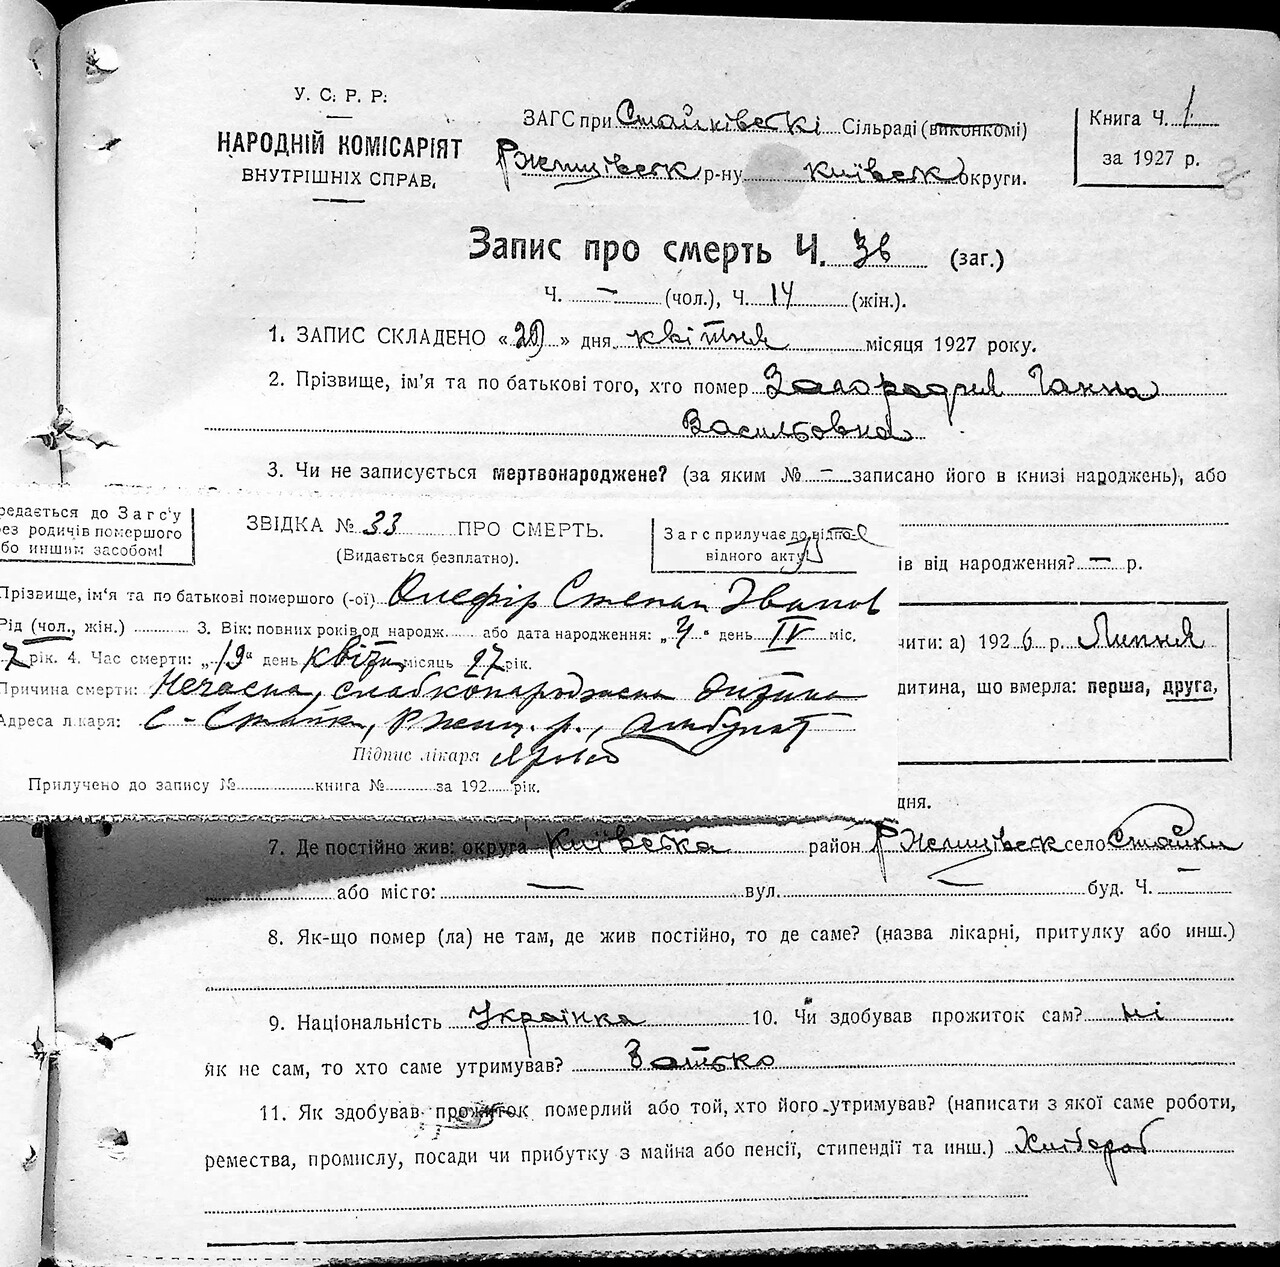 У. С. Р. Р.
НАРОДНІЙ КОМІСАРІЯТ
ВНУТРІШНІХ СПРАВ.
ЗАГС при Стайківскі Сільраді (виконкомі)
Ржищівськ р-ну київськ округи.
Книга Ч. 1
за 1927 р.
26
Запис про смерть Ч. 36 (заг.)
Ч. — (чол.), Ч. 14 (жін.).
1. ЗАПИС СКЛАДЕНО «20» дня квітня місяця 1927 року.
2. Прізвище, ім'я та по батькові того, хто помер Ганна
Васильовна
3. Чи не записується мертвонароджене? (за яким № — записано його в книзі народжень), або
ів від народження? — р.
чити: а) 1926 р. Липня
дитина, що вмерла: перша, друга,
дня.
редається до Загс'у
ез родичів помершого
бо иншим засобом!
ЗВІДКА № 33 ПРО СМЕРТЬ.
(Видається безплатно).
Загс прилучає до відпо-
відного акту!
Прізвище, ім'я та по батькові помершого (-ої) Олефір Степан Іванов
Рід (чол., жін.) 3. Вік: повних років од народж. або дата народження: „4“ день IV міс.
7 рік. 4. Час смерти: „19“ день квітн місяць 27 рік.
Причина смерти: Нечасна, слабконароджена дитина
Адреса лікаря: С-Стайки, Ржищ. р., амбулат
Підпис лікаря
Прилучено до запису № книга № за 192 рік.
7. Де постійно жив: округа Київська район Ржищівськ село Стайки
або місто: — вул. — буд. Ч. —
8. Як-що помер (ла) не там, де жив постійно, то де саме? (назва лікарні, притулку або инш.)
9. Національність Українка 10. Чи здобував прожиток сам? ні
Як не сам, то хто саме утримував? Батько
11. Як здобував прожиток померлий або той, хто його утримував? (написати з якої саме роботи,
ремества, промислу, посади чи прибутку з майна або пенсії, стипендії та инш.) Хлібороб